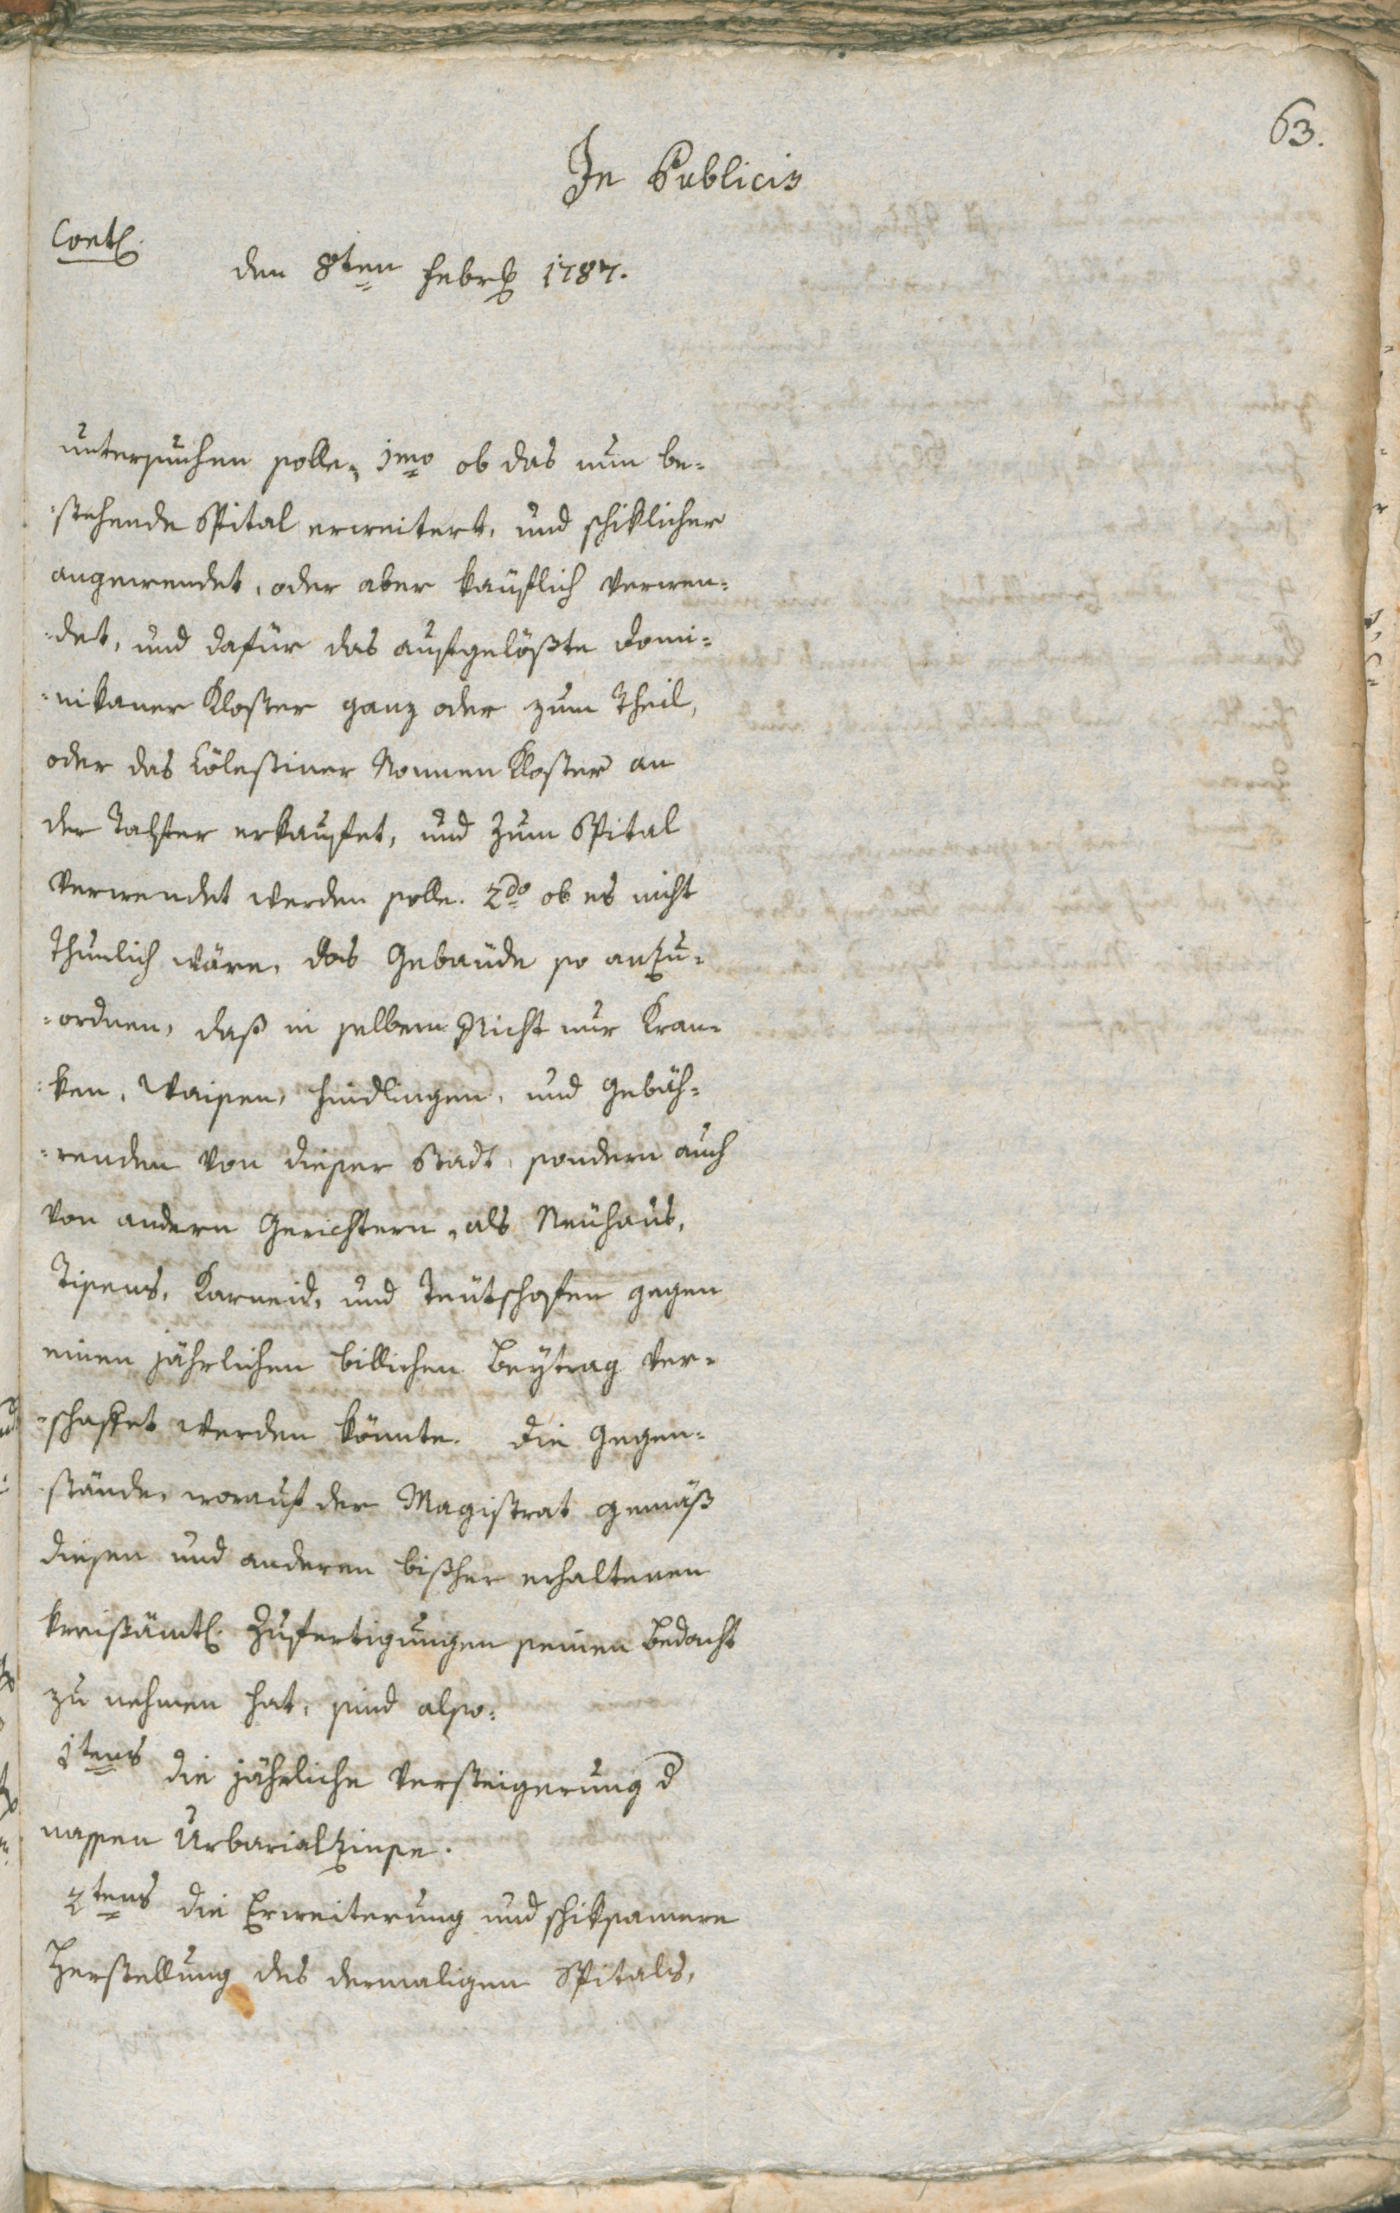 63.
In Publicis
Contl.
den 8ten Febrl. 1787.
untersuchen solle, 1mo ob das nun be=
=stehende Spital erweitert, und schiklicher
angewendet, oder aber käuflich verwen=
=det, und dafür das aufgelößte Domi=
=nikaner Kloster ganz oder zum Theil,
oder das Cölestiner Nonnen Kloster an
der Talfer erkaufet, und zum Spital
verwendet werden solle. 2do ob es nicht
thunlich wäre, das Gebäude so anzu=
=ordnen, daß in selbem Nicht nur Kran=
=ken, Waisen, Findlingen, und Gebäh=
=renden von dieser Stadt, sondern auch
von andern Gerichtern, als Neuhaus,
Tisens, Karneid, und Teutschofen gegen
einen jährlichen billichen Beytrag ver=
=schaffet werden könnte. Die Gegen=
=stände, worauf der Magistrat gemäß
diesen und anderen bißher erhaltenen
kreisämtl. Zufertigungen seinen Bedacht
zu nehmen hat, sind also:
1tens die jährliche Versteigerung d
nassen Urbarialzinse.
2tens die Erweiterung und schiksamere
Herstellung des dermaligen Spitals,